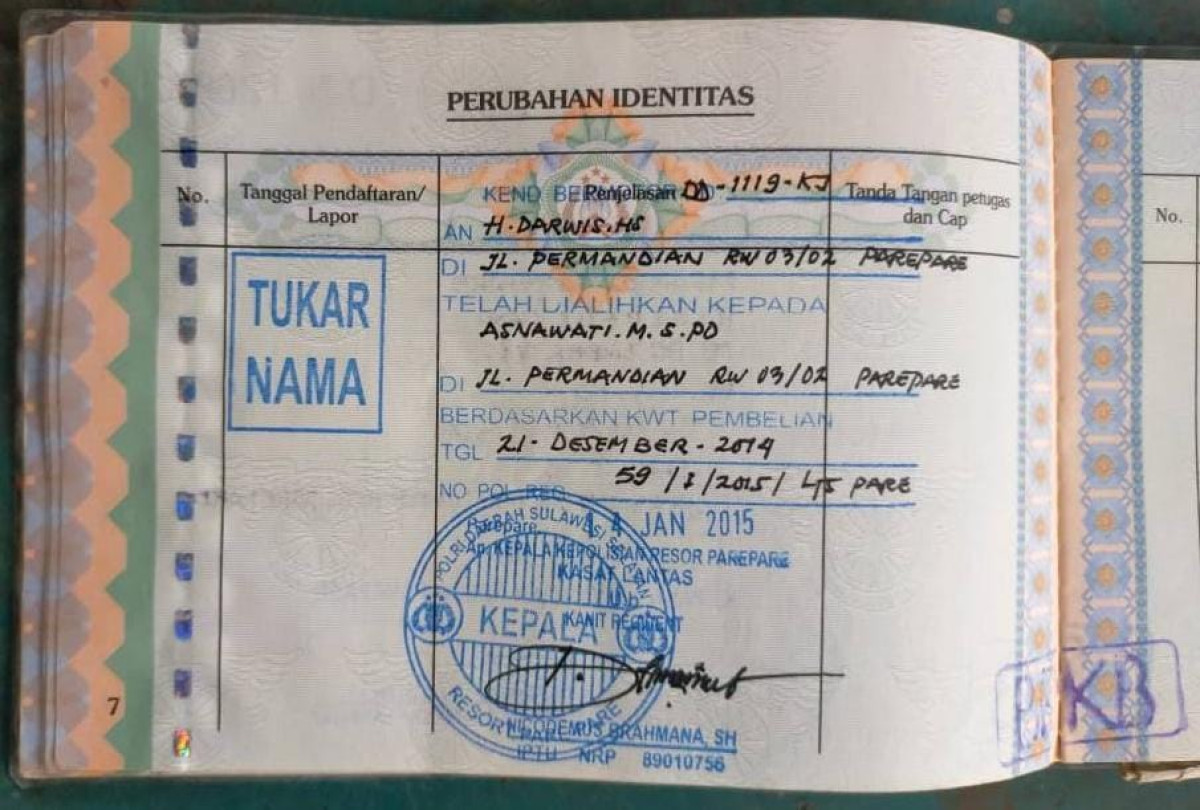 PERUBAHAN IDENTITAS
No.
Tanggal Pendaftaran/
Lapor
Penjelasan
Tanda Tangan petugas
dan Cap
No.
KEND DD-1119-KJ
AN H. DARWIS. HS
DI JL. PERMANDIAN RW 03/02 PAREPARE
TELAH DIALIHKAN KEPADA
ASNAWATI. M. S. PD
DI JL. PERMANDIAN RW 03/02 PAREPARE
BERDASARKAN KWT PEMBELIAN
TGL 21 - DESEMBER - 2014
NO POL REG 59 / I / 2015 / 45 PARE
TUKAR
NAMA
Parepare 14 JAN 2015
An. KEPALA KEPOLISIAN RESOR PAREPARE
KASAT LANTAS
U.b
KANIT REGIDENT
POLRI DAERAH SULAWESI SELATAN
KEPALA
RESOR PARE PARE
NICODEMUS BRAHMANA, SH
IPTU NRP 89010756
7
KB